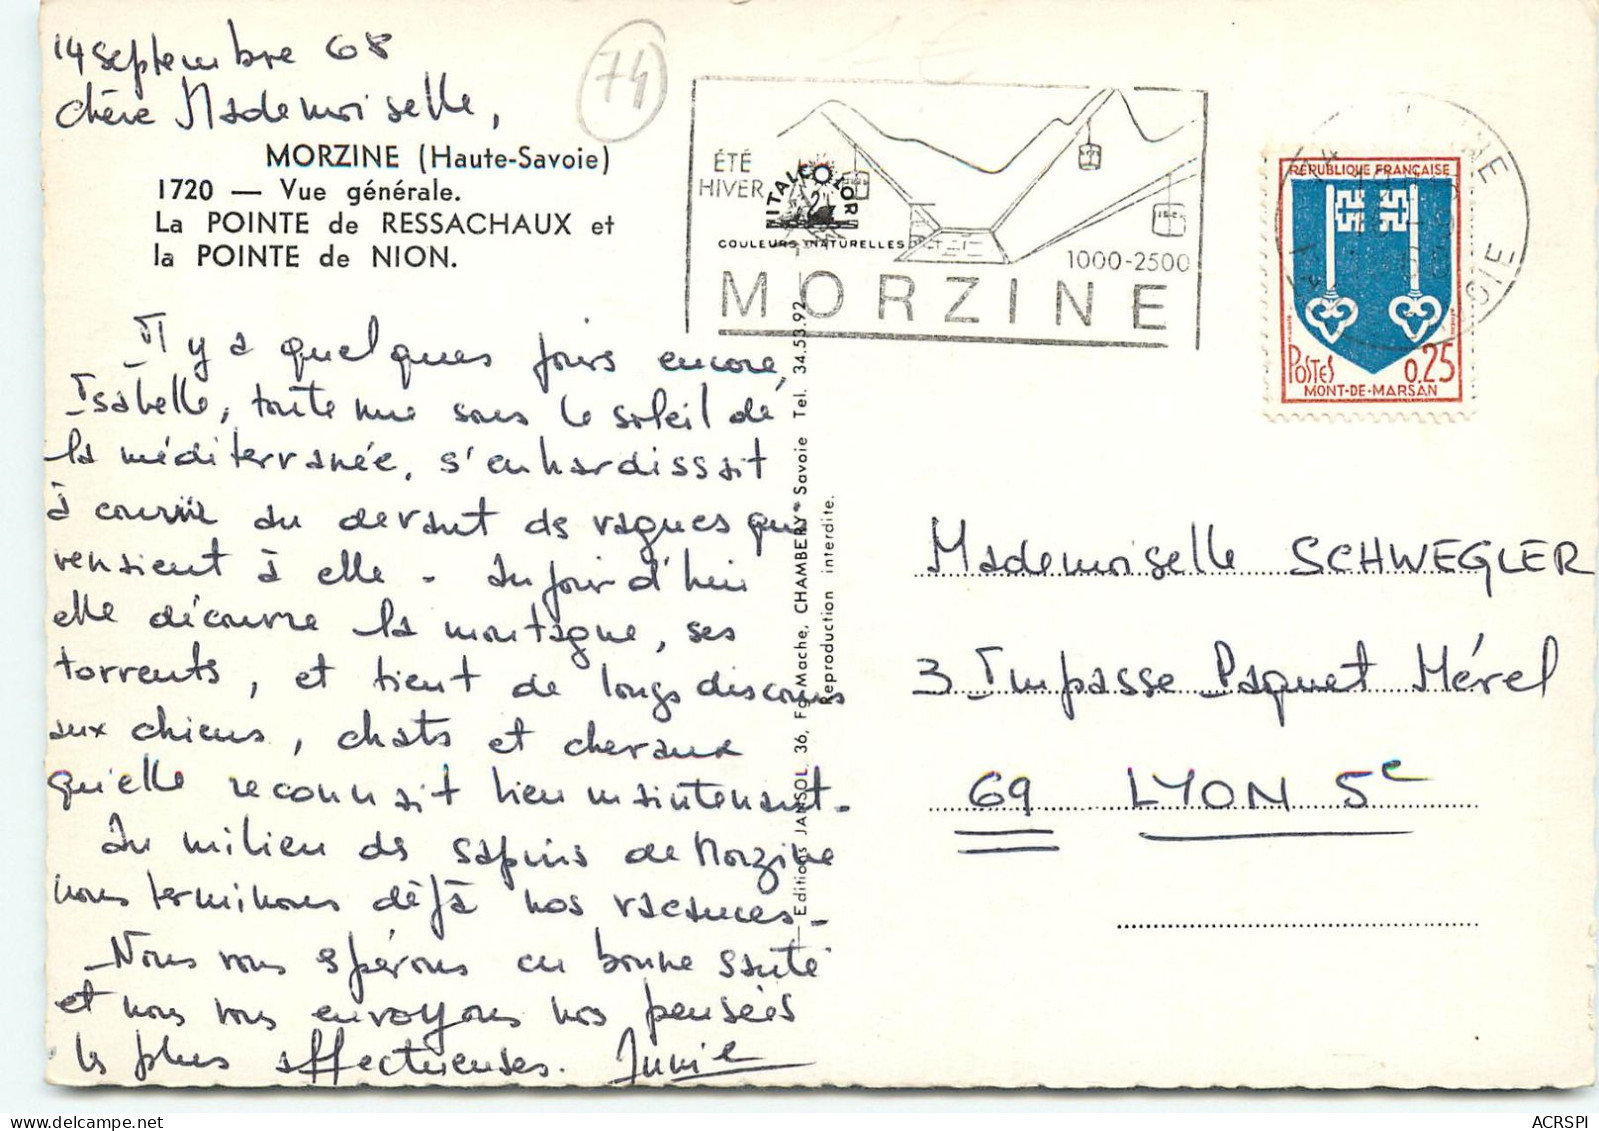 14 septembre 68
Chère Mademoiselle,
MORZINE (Haute-Savoie)
1720 — Vue générale.
La POINTE de RESSACHAUX et
la POINTE de NION.
Il y a quelques jours encore,
Isabelle, toute nue sous le soleil de
la méditerranée, s'enhardissait
à courir au devant des vagues qui
venaient à elle - Aujourd'hui
elle découvre la montagne, ses
torrents, et tient de longs discours
aux chiens, chats et chevaux
qu'elle reconnait bien maintenant -
Au milieu des sapins de Morzine
nous terminons déjà nos vacances -
Nous vous espérons en bonne santé
et nous vous envoyons nos pensées
les plus affectueuses. Annie
74
ÉTÉ
HIVER
VITALCOLOR
COULEURS NATURELLES
1000-2500
MORZINE
Editions JANSOL, 36, Fg Mache, CHAMBERY Savoie Tel. 34.53.92
Reproduction interdite.
RÉPUBLIQUE FRANÇAISE
POSTES 0,25
MONT-DE-MARSAN
Mademoiselle SCHWEGLER
3 Impasse Paquet Mérel
69 LYON 5e
ACRSPI